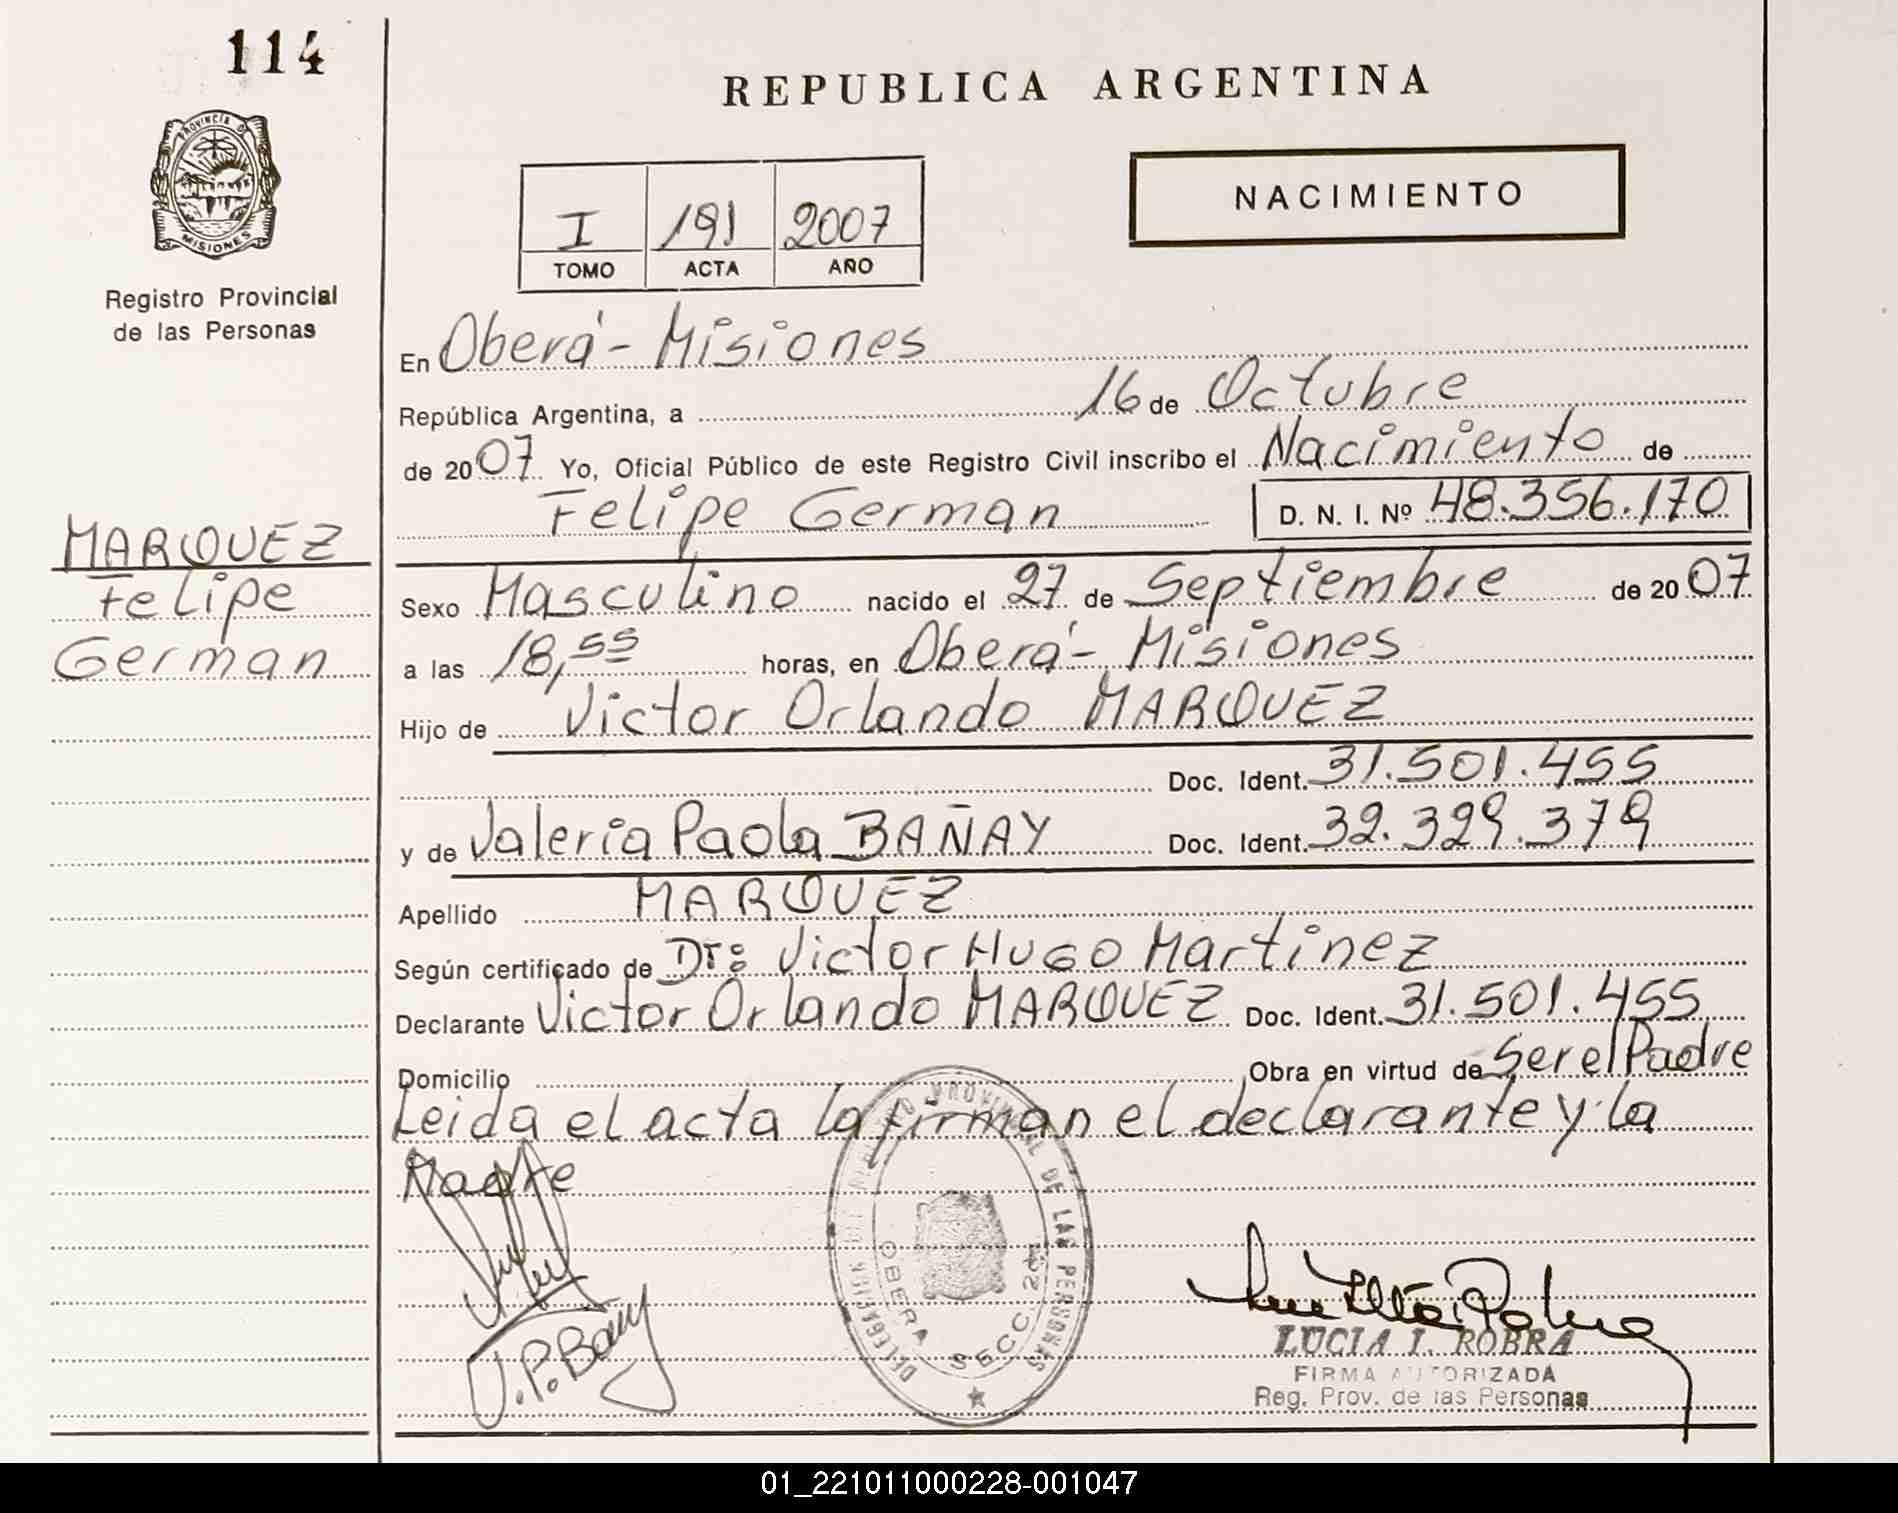 114
PROVINCIA DE
MISIONES
Registro Provincial
de las Personas
MARQUEZ
Felipe
German
REPUBLICA ARGENTINA
NACIMIENTO
I 191 2007
TOMO ACTA AÑO
En Oberá - Misiones
República Argentina, a 16 de Octubre
de 2007 Yo, Oficial Público de este Registro Civil inscribo el Nacimiento de
Felipe German D. N. I. Nº 48.356.170
Sexo Masculino nacido el 27 de Septiembre de 2007
a las 18,55 horas, en Oberá - Misiones
Hijo de Victor Orlando MARQUEZ
Doc. Ident. 31.501.455
y de Valeria Paola BAÑAY Doc. Ident. 32.329.379
Apellido MARQUEZ
Según certificado de Dr: Victor Hugo Martinez
Declarante Victor Orlando MARQUEZ Doc. Ident. 31.501.455
Domicilio Obra en virtud de Ser el Padre
Leida el acta la firman el declarante y la
Madre
PROVINCIAL DE LAS PERSONAS
OBERA SECC.
V.P.Bañay
LUCIA I. ROBRA
FIRMA AUTORIZADA
Reg. Prov. de las Personas
01_221011000228-001047